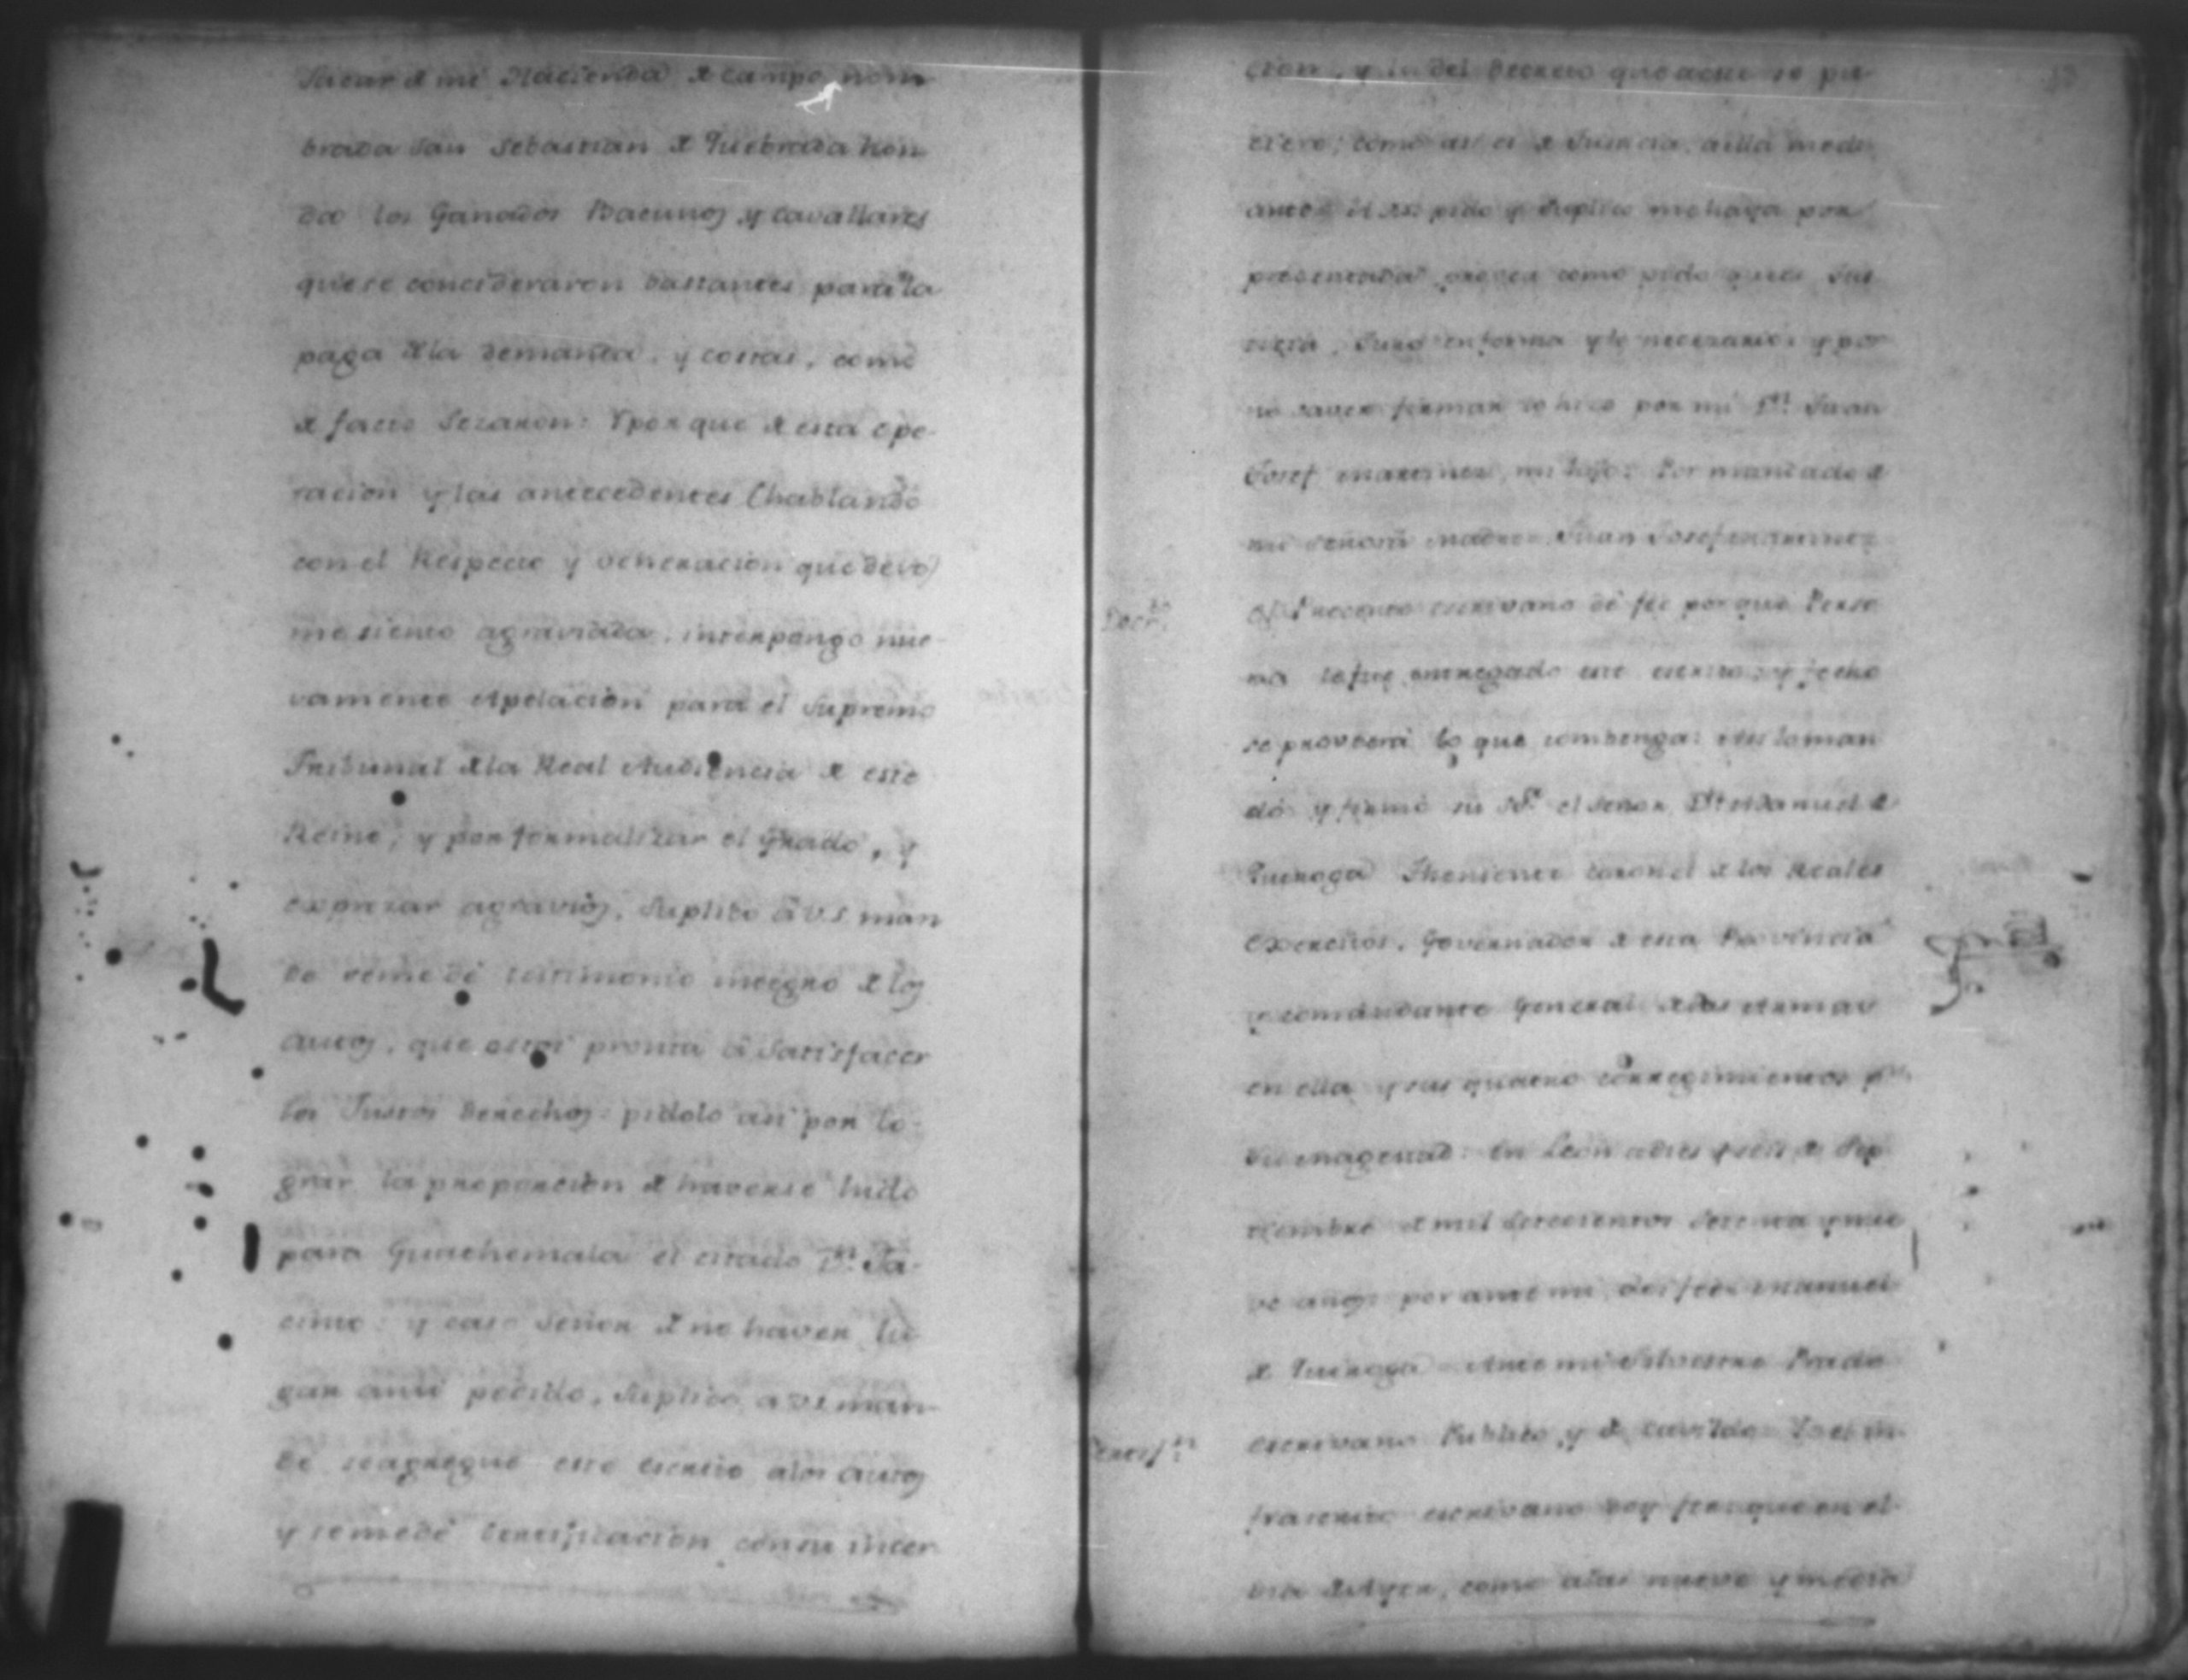 Sacar de mi Hacienda de campo nom
brada San Sebastian de Quebrada hon
da los Ganados Bacunos y cavallares
que se concideraron bastantes para la
paga de la demanda, y costas, como
de facto Sezaron: Y porque de esta ope-
racion y las antecedentes (hablando
con el Respecto y veneracion que devo)
me siento agraviada, interpongo nue-
vamente Apelacion para el Supremo
Tribunal de la Real Audiencia de este
Reino, y por formalizar el Grado, y
exprezar agravios, Suplico â V.S. man
de se me dé testimonio integro de los
autos, que estoi pronta â Satisfacer
los Justos Derechos: pidolo asi por lo-
grar la proporcion de haverse hido
para Guathemala el citado Dn. Ja-
cinto: y caso Señor de no haver lu-
gar ami pedido, Suplico a VS. man-
de se agregue este escrito alos autos
y se me dé Certificacion con su incer
cion, y la del Decreto que a este se pu-
ciere; como asi es de Justicia, a ella medi
ante â VS. pido y Suplico me haya por
presentada provea como pido que es Jus
ticia, Juro en forma y lo necezario: y por
no saver firmar lo hizo por mi Dn. Juan
Josef Martinez, mi hijo: Por mandado de
mi Señora Madre: Juan Josef Martinez
Decto. El Precente escrivano dé fee por que Perso
na le fue entregado este escrito, y fecho
se proveerá lo que combenga: Asi lo man
dó y firmó su Sª. el Señor Dn. Manuel de
Quiroga Theniente coronel de los Reales
Exercitos, Governador de esta Provincia
y comandante General de las Armas
en ella y sus quatro corregimientos pr.
Su Magestad: En Leon a dies y seis de Sep
tiembre de mil Setecientos Setenta y nue
ve años: por ante mi, doi fee: Manuel
de Quiroga = Ante mi Silvestre Prado
Escrivano Publico, y de Cavildo: Yo el in-
frascrito escrivano doy fee: que en el
dia de Ayer, como alas nueve y media